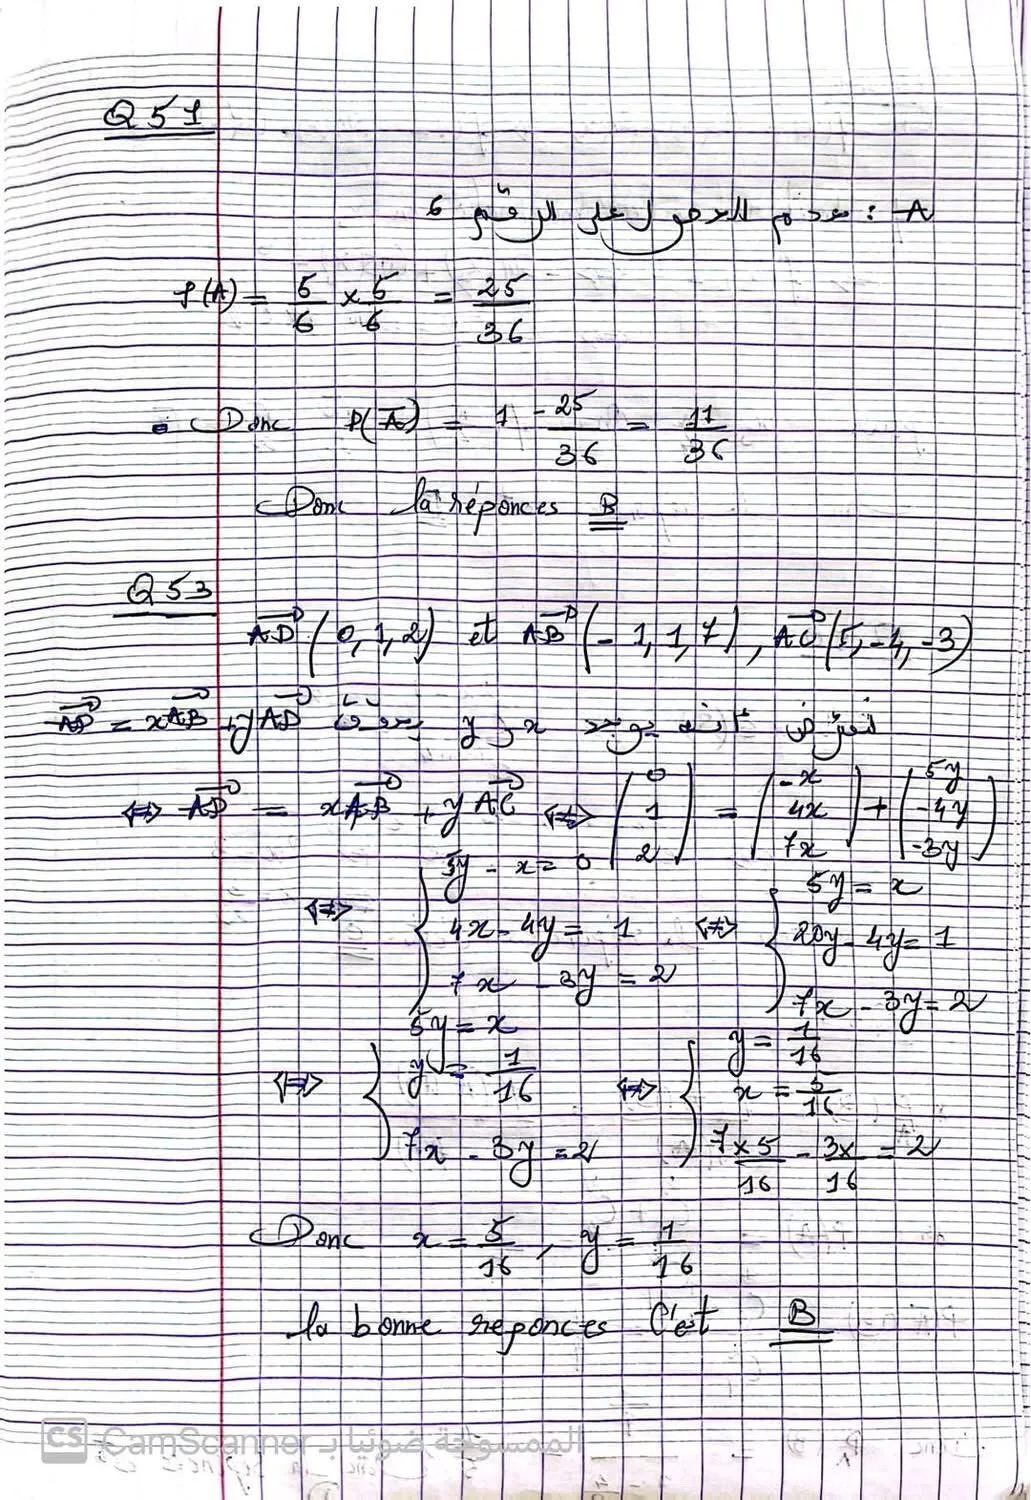 Q51
A : عدم الحصول على الرقم 6
P(A) = 5/6 × 5/6 = 25/36
Donc P(A̅) = 1 - 25/36 = 11/36
Donc la réponces B
Q53
AD⃗ (0,1,2) et AB⃗ (-1,1,7), AC⃗ (5,-4,-3)
نفترض أنه يوجد x و y بحيث AD⃗ = xAB⃗ + yAD⃗
⇔ AD⃗ = xAB⃗ + yAC⃗ ⇔ (0 1 2) = (-x 4x 7x) + (5y -4y -3y)
⇔ { 5y - x = 0 ⇔ { 5y = x
4x - 4y = 1 20y - 4y = 1
7x - 3y = 2 7x - 3y = 2
⇔ { 5y = x ⇔ { y = 1/16
y = 1/16 x = 5/16
7x - 3y = 2 7×5/16 - 3x/16 = 2
Donc x = 5/16, y = 1/16
la bonne reponces C'est B
CS CamScanner الممسوحة ضوئيا بـ